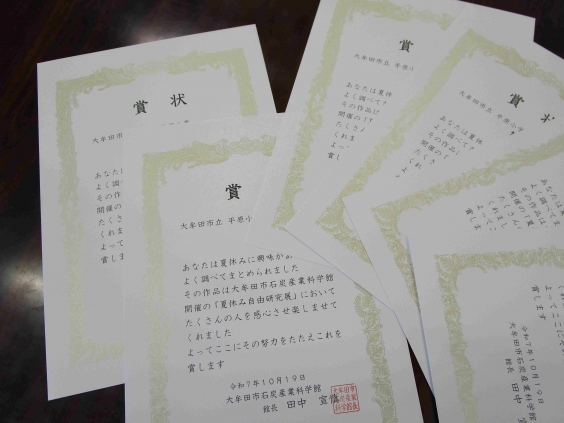 賞 状
大牟田市
あなたは
よく調べ
その作品
開催の
たくさ
くれま
よって
賞しま
賞
大牟田市立 平原小
あなたは夏休みに興味が
よく調べてまとめられました
その作品は大牟田市石炭産業科学館
開催の「夏休み自由研究展」において
たくさんの人を感心させ楽しませて
くれました
よってここにその努力をたたえこれを
賞します
令和7年10月19日
大牟田市石炭産業科学館
館長 田中 宣
賞
大牟田市立 平原小
あなたは夏休
よく調べて
その作品
開催の「
たくさ
くれま
よっ
賞し
賞 状
大牟田市立 平原小学
あなたは夏休
よく調べて
その作品
開催の「
たくさ
くれ
あなたは夏休
よく調べて
その作品は
開催の「夏
たくさん
くれまし
よってこ
賞します
よってここに
賞します
令和7年10月19日
大牟田市石炭産業科学館
館長 田中